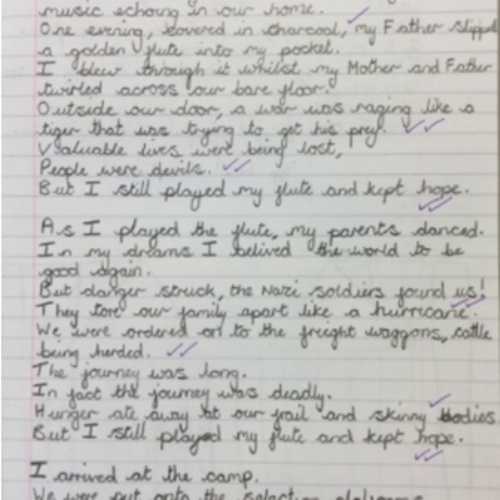 music echoing in our home.
One evening, covered in charcoal, my Father slipped
a golden flute into my pocket.
I blew through it whilst my Mother and Father
twirled across our bare floor.
Outside our door, a war was raging like a
tiger that was trying to get his prey.
Valuable lives were being lost,
People were devils.
But I still played my flute and kept hope.
As I played the flute, my parents danced.
In my dreams I belived the world to be
good again.
But danger struck, the Nazi soldiers found us!
They tore our family apart like a hurricane.
We were ordered on to the freight waggons, cattle
being herded.
The journey was long.
In fact the journey was deadly.
Hunger ate away at our frail and skinny bodies
But I still played my flute and kept hope.
I arrived at the camp.
We were put onto the selection platforms